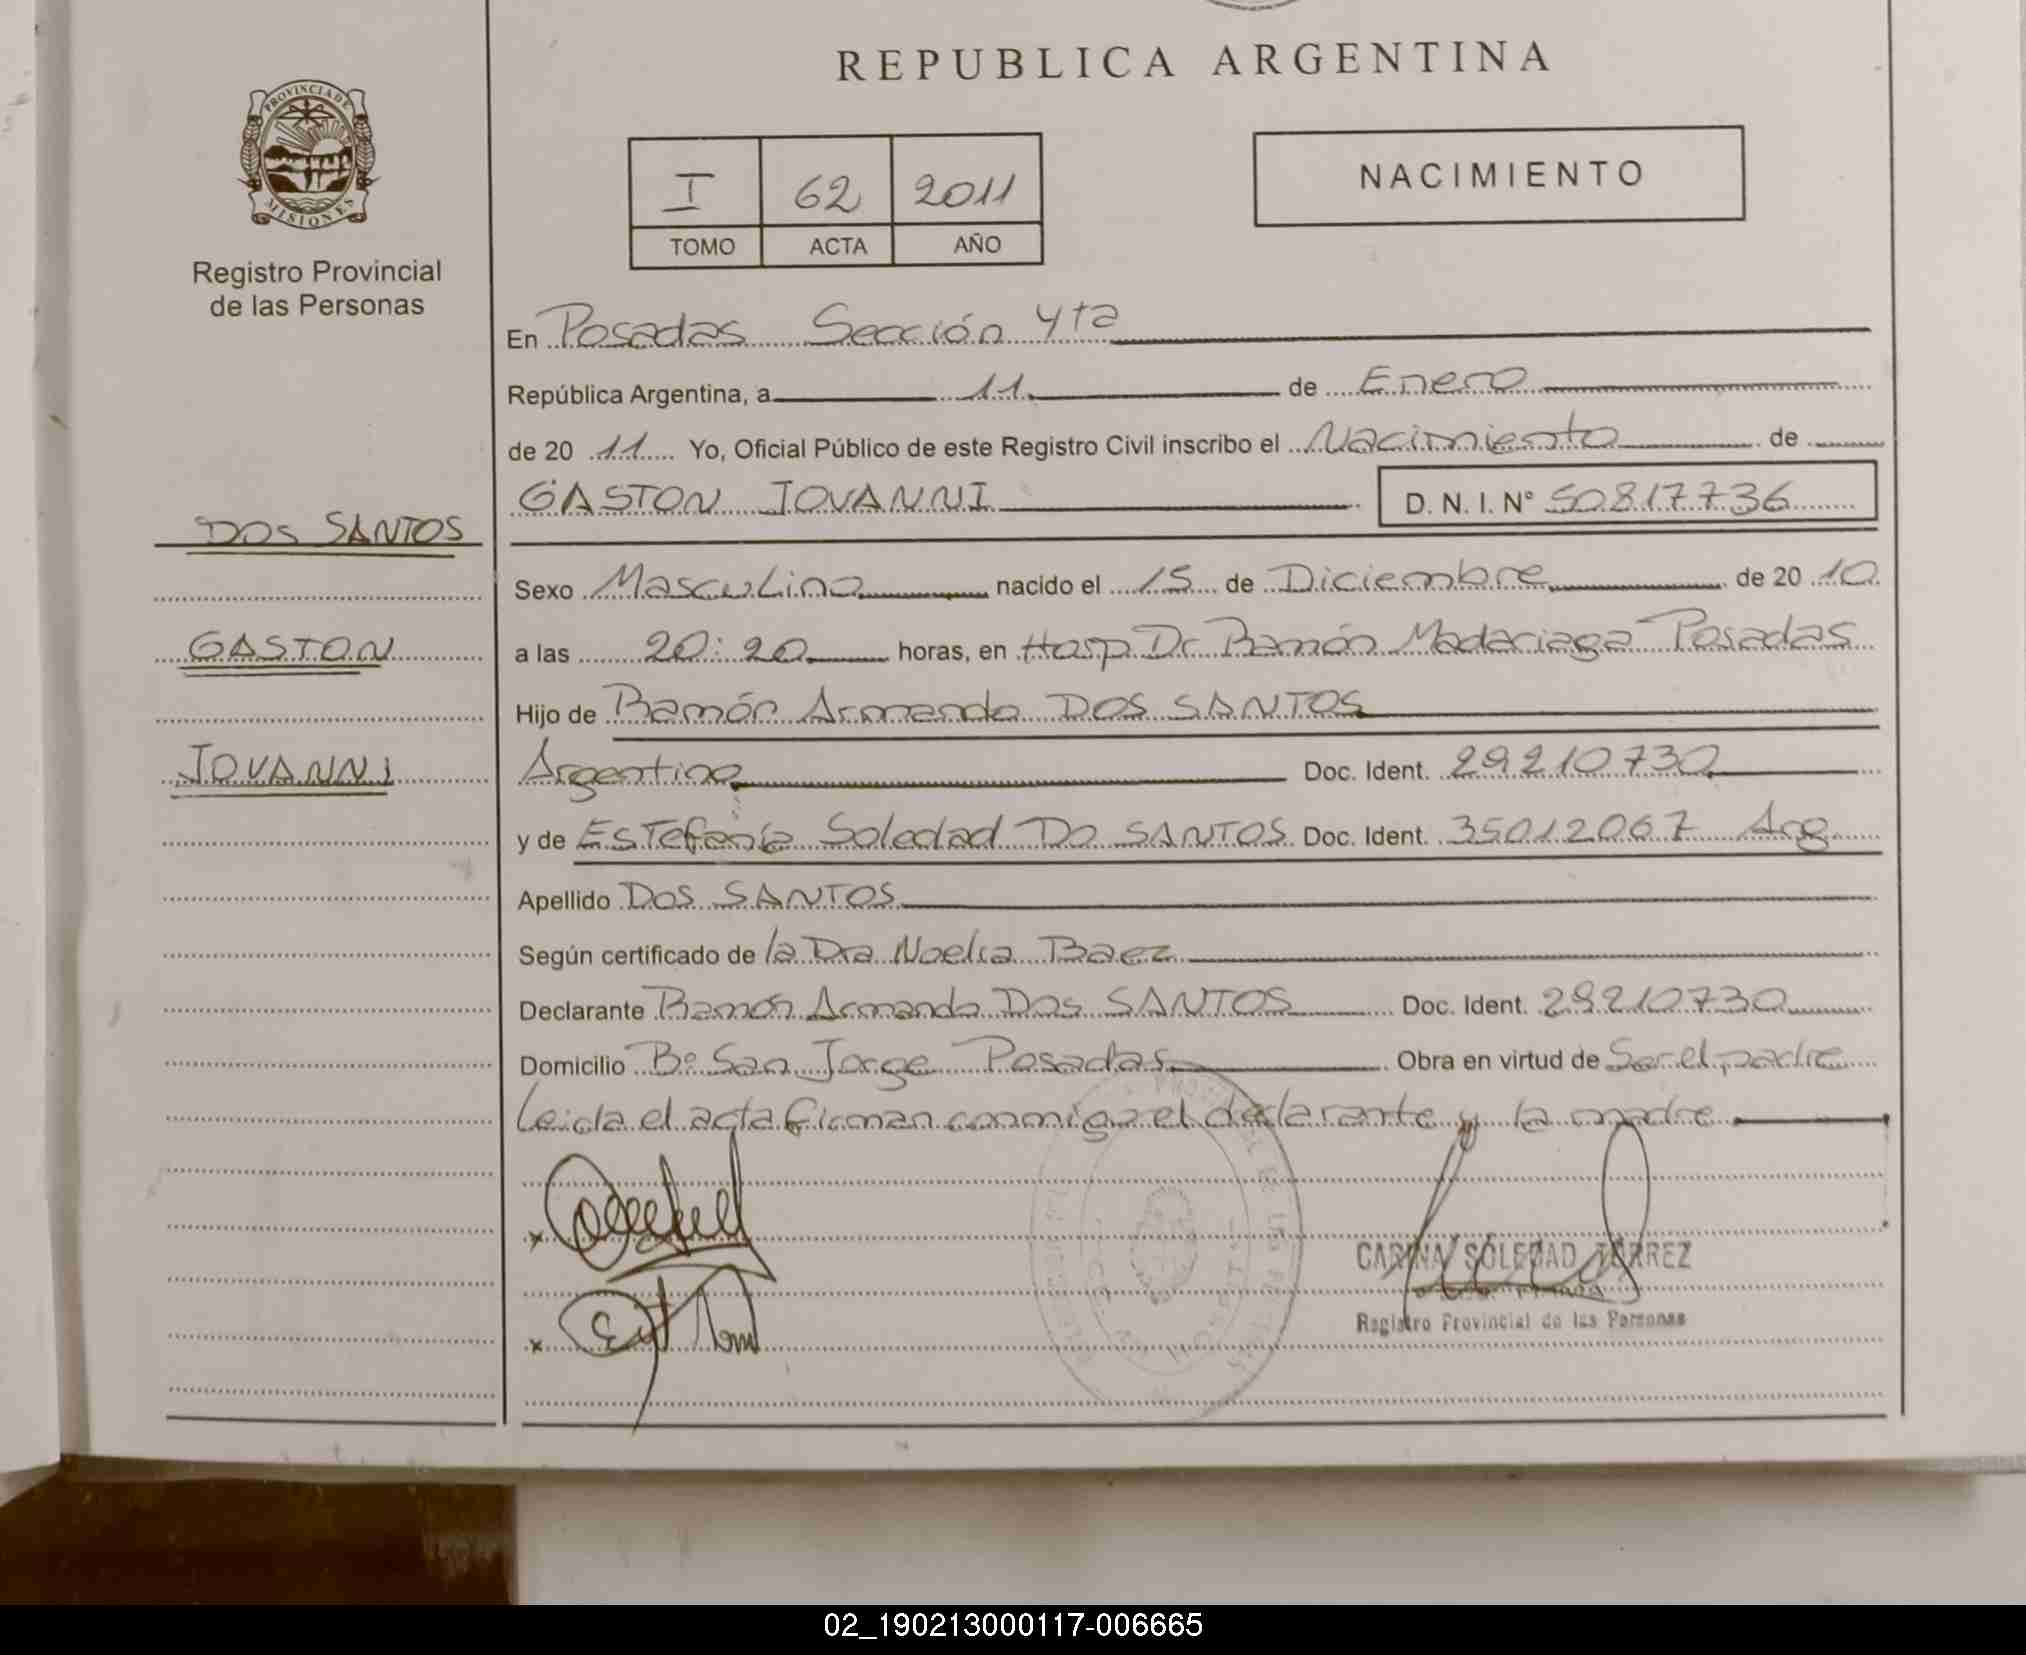 REPUBLICA ARGENTINA
PROVINCIA DE
MISIONES
Registro Provincial
de las Personas
I 62 2011
TOMO ACTA AÑO
NACIMIENTO
En Posadas Sección 4ta
República Argentina, a 11 de Enero
de 20 11 Yo, Oficial Público de este Registro Civil inscribo el Nacimiento de
GASTON JOVANNI D. N. I. Nº 50817736
DOS SANTOS
GASTON
JOVANNI
Sexo Masculino nacido el 15 de Diciembre de 20 10
a las 20:20 horas, en Hosp Dr Ramón Madariaga Posadas
Hijo de Ramón Armando DOS SANTOS
Argentino Doc. Ident. 29210730
y de Estefanía Soledad DO SANTOS Doc. Ident. 35012067 Arg
Apellido DOS SANTOS
Según certificado de la Dra Noelia Baez
Declarante Ramón Armando DOS SANTOS Doc. Ident. 29210730
Domicilio Bº San Jorge Posadas Obra en virtud de Ser el padre
Leída el acta firman conmigo el declarante y la madre
CARINA SOLEDAD TORREZ
Registro Provincial de las Personas
02_190213000117-006665